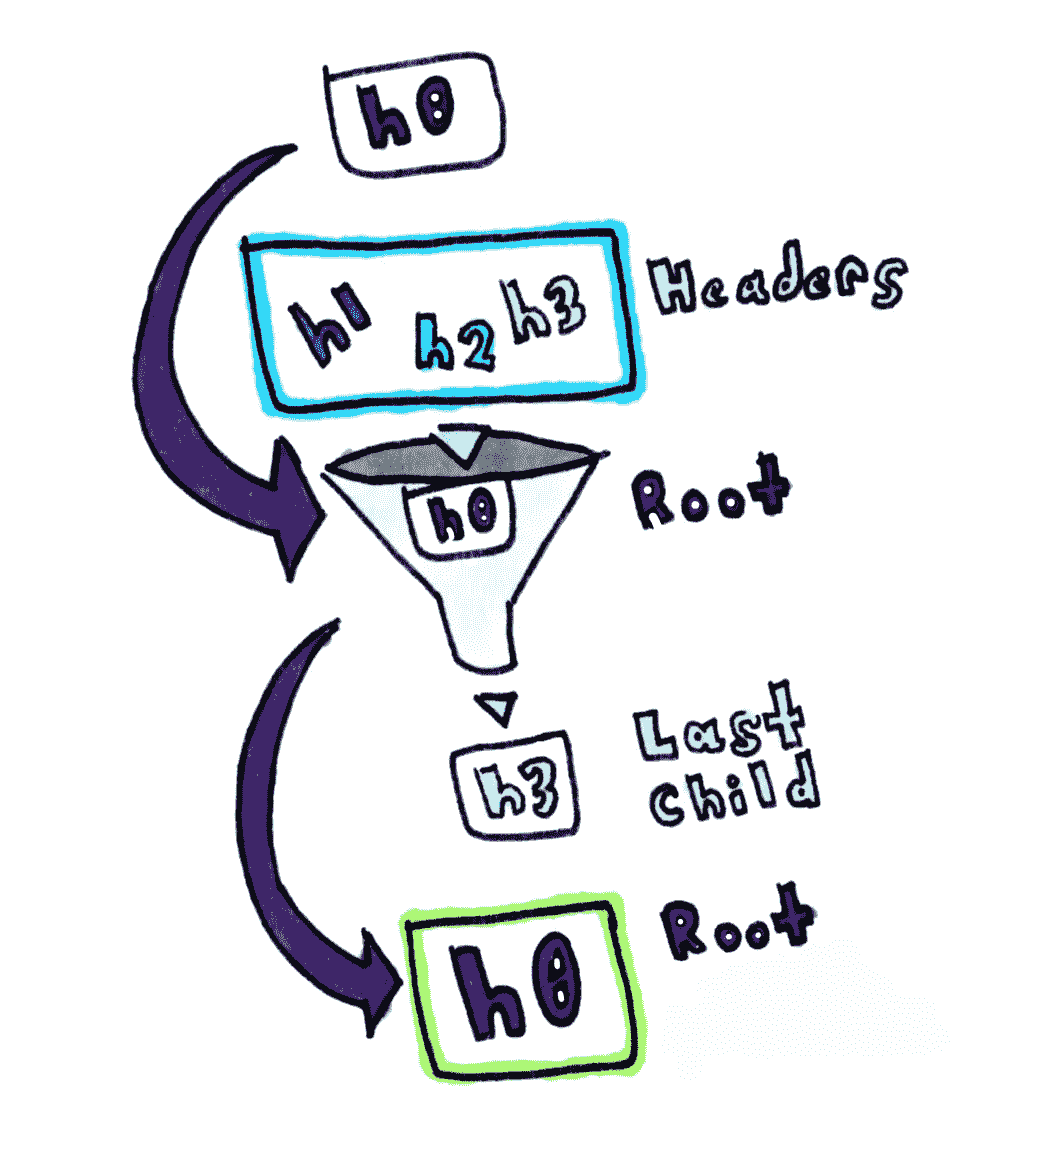 h0
h1 h2 h3
Headers
h0
Root
h3
Last
child
Root
h0